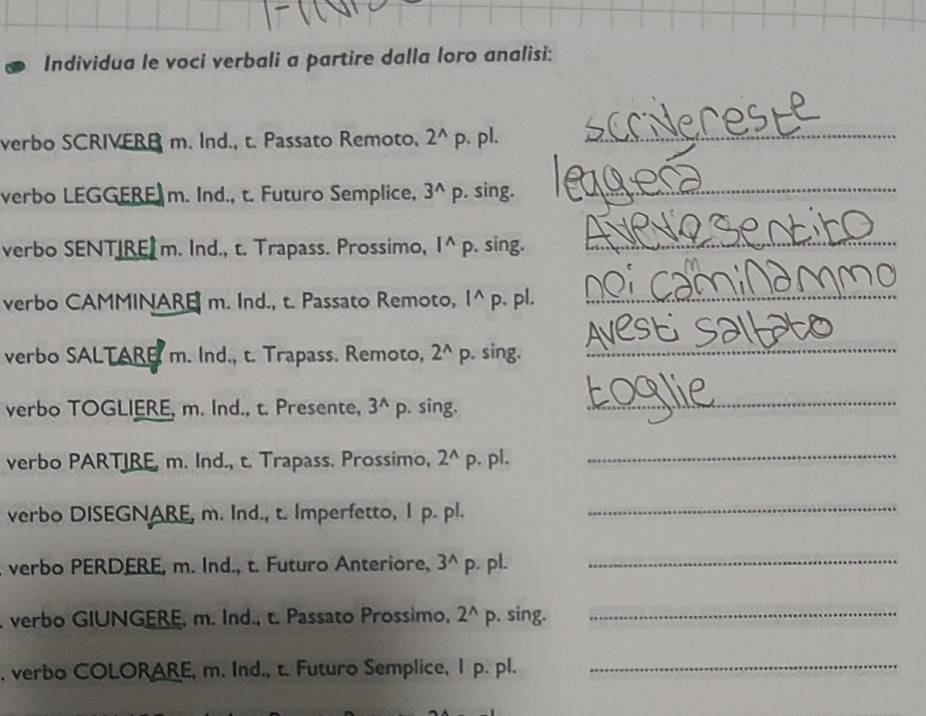 Individua le voci verbali a partire dalla loro analisi:
verbo SCRIVERE m. Ind., t. Passato Remoto, 2^ p. pl. scrivereste
verbo LEGGERE m. Ind., t. Futuro Semplice, 3^ p. sing. leggerà
verbo SENTIRE m. Ind., t. Trapass. Prossimo, 1^ p. sing. Avevo sentito
verbo CAMMINARE m. Ind., t. Passato Remoto, 1^ p. pl. noi caminammo
verbo SALTARE m. Ind., t. Trapass. Remoto, 2^ p. sing. Avesti saltato
verbo TOGLIERE, m. Ind., t. Presente, 3^ p. sing. toglie
verbo PARTIRE, m. Ind., t. Trapass. Prossimo, 2^ p. pl.
verbo DISEGNARE, m. Ind., t. Imperfetto, 1 p. pl.
verbo PERDERE, m. Ind., t. Futuro Anteriore, 3^ p. pl.
. verbo GIUNGERE, m. Ind., t. Passato Prossimo, 2^ p. sing.
. verbo COLORARE, m. Ind., t. Futuro Semplice, 1 p. pl.